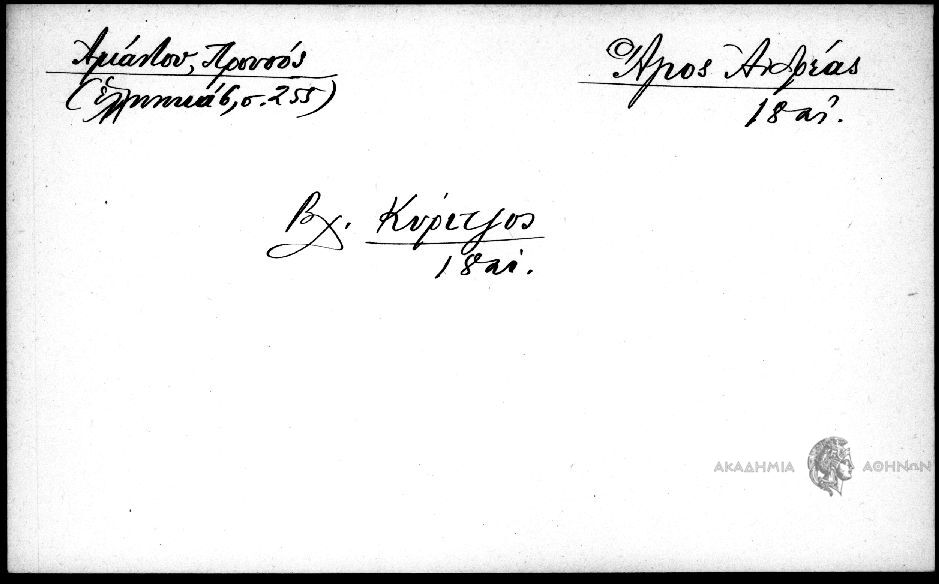 Ἀμάντου, Προυσός
(Ἑλληνικά 6, σ. 255)
Ἄγιος Ἀνδρέας
18 αἰ.
Βχ. Κύριτζος
18 αἰ.
ΑΚΑΔΗΜΙΑ ΑΘΗΝΩΝ